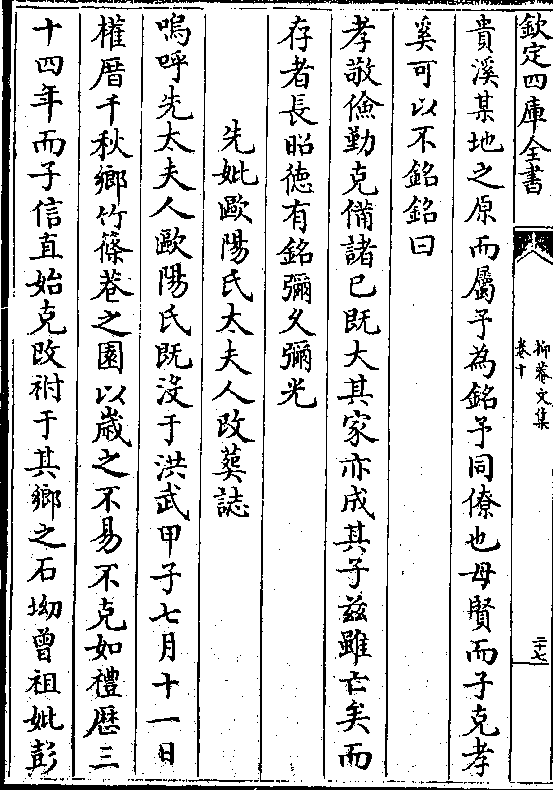 欽定四庫全書
抑菴文集
卷十
二十七
貴溪某地之原而屬予為銘予同僚也母賢而子克孝
奚可以不銘銘曰
孝敬儉勤克備諸已既大其家亦成其子兹雖亡矣而
存者長昭徳有銘彌久彌光
先妣歐陽氏太夫人改葬誌
嗚呼先太夫人歐陽氏既沒于洪武甲子七月十一日
權厝千秋鄉竹篠菴之園以歲之不易不克如禮歴三
十四年而子信直始克改祔于其鄉之石坳曾祖妣彭